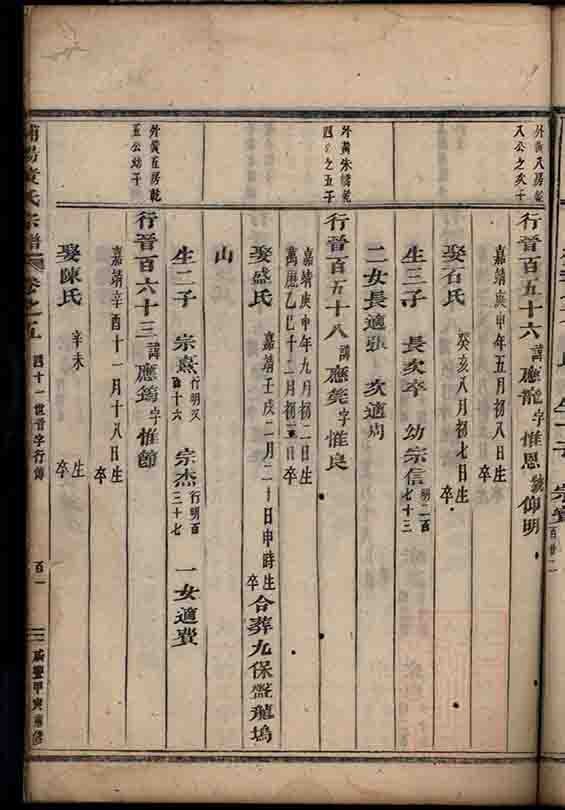 外黃八房乾
八公之次子
行晉百五十六諱應龍字惟恩號仰明
嘉靖庚申年五月初八日生
卒
娶石氏 癸亥八月初七日生
卒
生三子 長次卒 幼宗信明二百七十三
二女長適張 次適
外黃朱橋乾
四公之五子
行晉百五十八諱應莞字惟良
嘉靖庚申年九月初二日生
萬歷乙巳十二月初 日卒
娶盛氏 嘉靖壬戌二月二十日申時生
卒
合葬九保盤龍塢
山
生二子 宗熹行明 宗杰行明百三十七 一女適費
外黃五房乾
五公幼子
行晉百六十三諱應筠字惟節
嘉靖辛酉十一月十八日生
卒
娶陳氏 辛未 生
卒
氏宗譜 卷之五 四十一世晉字行傳 百一